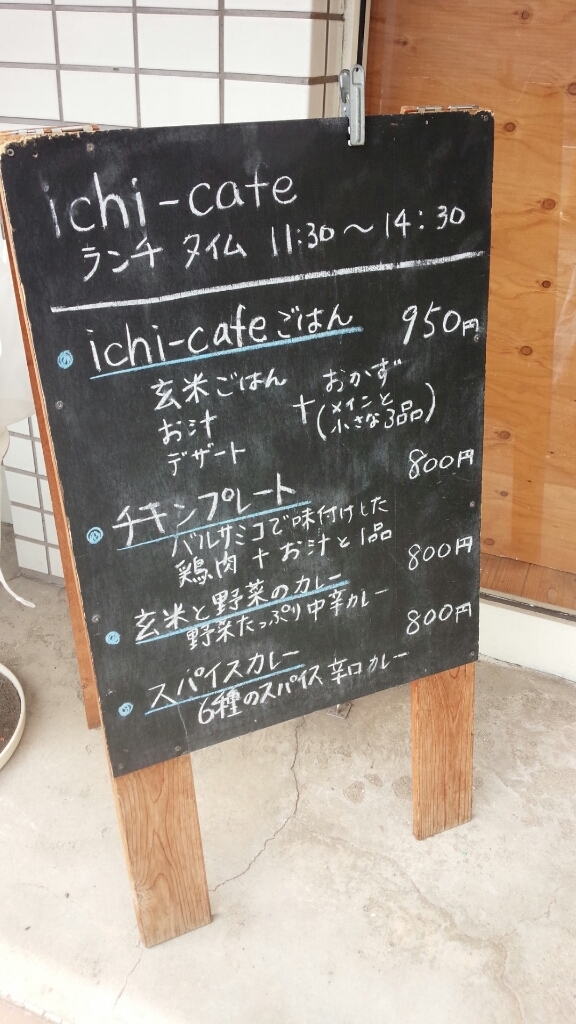 ichi-cafe
ランチ タイム 11:30〜14:30
ichi-cafeごはん 950円
玄米ごはん
お汁
デザート
+ おかず
(メインと
小さな3品)
チキンプレート 800円
バルサミコで味付けした
鶏肉 + お汁と1品
玄米と野菜のカレー 800円
野菜たっぷり中辛カレー
スパイスカレー 800円
6種のスパイス 辛口カレー